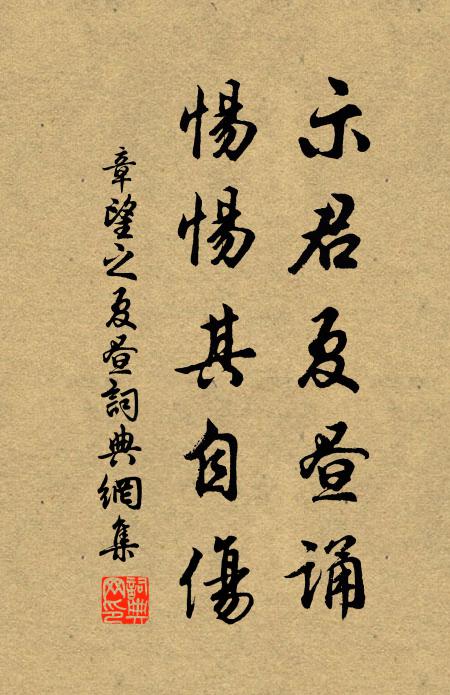 示君夏晝誦
惕惕其自傷
章望之夏晝詞典網集
詞典网印